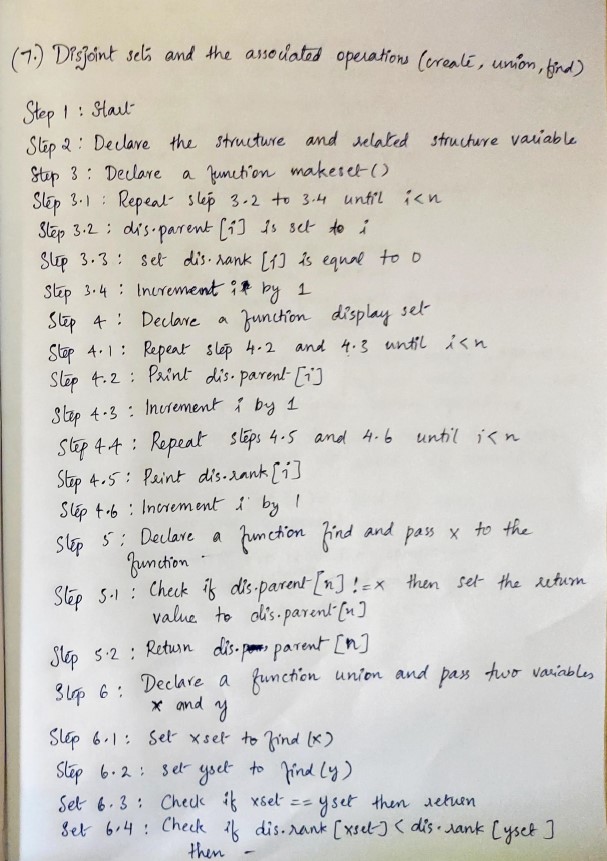 (7.) Disjoint sets and the associated operations (create, union, find)
Step 1 : Start
Step 2 : Declare the structure and related structure variable
Step 3 : Declare a function makeset ()
Step 3.1 : Repeat step 3.2 to 3.4 until i<n
Step 3.2 : dis.parent [i] is set to i
Step 3.3 : set dis.rank [i] is equal to 0
Step 3.4 : Increment i by 1
Step 4 : Declare a function display set
Step 4.1 : Repeat step 4.2 and 4.3 until i<n
Step 4.2 : Print dis.parent [i]
Step 4.3 : Increment i by 1
Step 4.4 : Repeat steps 4.5 and 4.6 until i<n
Step 4.5 : Print dis.rank [i]
Step 4.6 : Increment i by 1
Step 5 : Declare a function find and pass x to the
function
Step 5.1 : Check if dis.parent [n] != x then set the return
value to dis.parent [n]
Step 5.2 : Return dis. parent [n]
Step 6 : Declare a function union and pass two variables
x and y
Step 6.1 : Set xset to find (x)
Step 6.2 : set yset to find (y)
Set 6.3 : Check if xset == yset then return
Set 6.4 : Check if dis.rank [xset] < dis.rank [yset]
then -